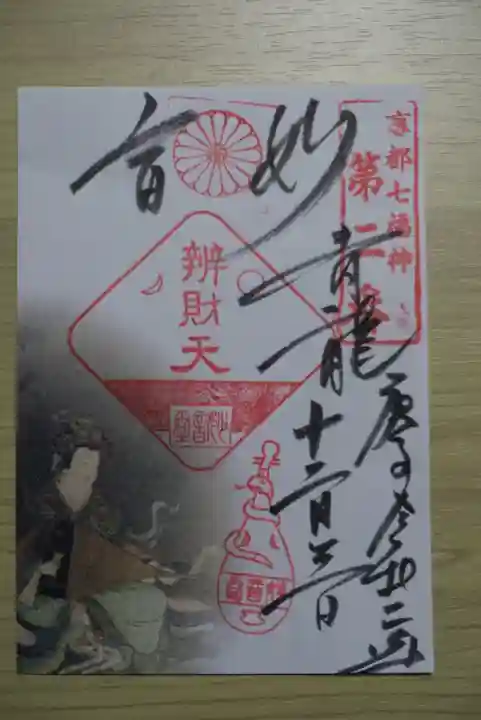 京都七福神
第二番
妙音
青龍
庚子令和二年
十二月
日
辨財天
妙音堂